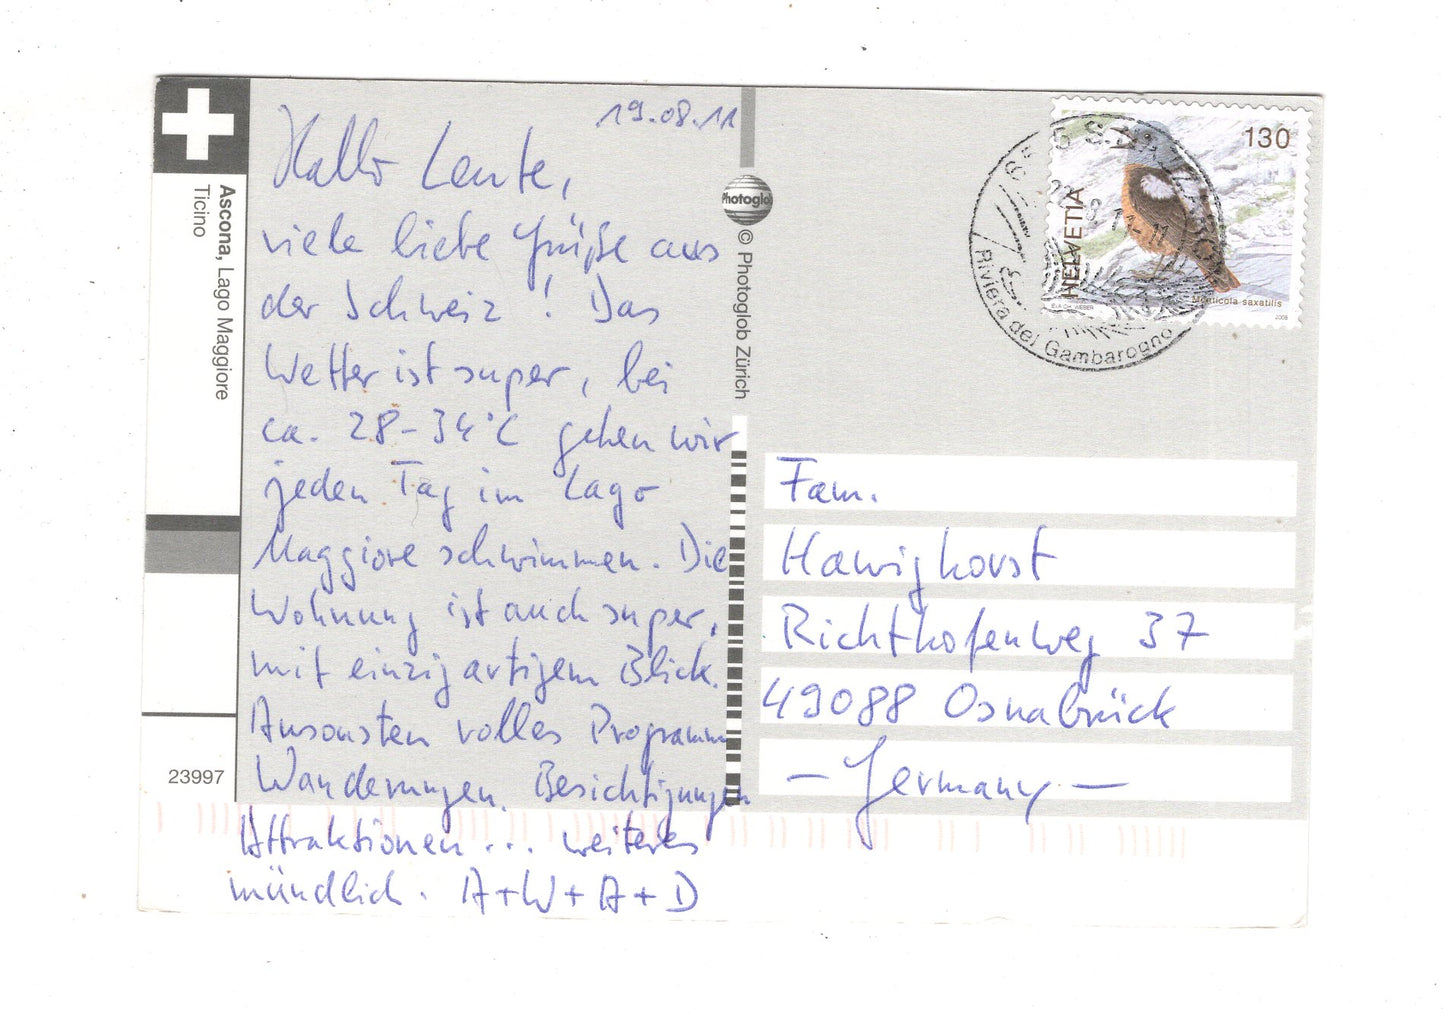 19.08.11
Hallo Leute,
viele liebe Grüße aus
der Schweiz! Das
Wetter ist super, bei
ca. 28-34°C gehen wir
jeden Tag im Lago
Maggiore schwimmen. Die
Wohnung ist auch super,
mit einzigartigem Blick.
Ansonsten volles Programm
Wanderungen, Besichtigungen
Attraktionen ... weiteres
mündlich. A+W+A+D
Ascona, Lago Maggiore
Ticino
23997
Photoglob
© Photoglob Zürich
130
HELVETIA
Monticola saxatilis
2008
Riviera del Gambarogno
Fam.
Hawighorst
Richthofenweg 37
49088 Osnabrück
- Germany -